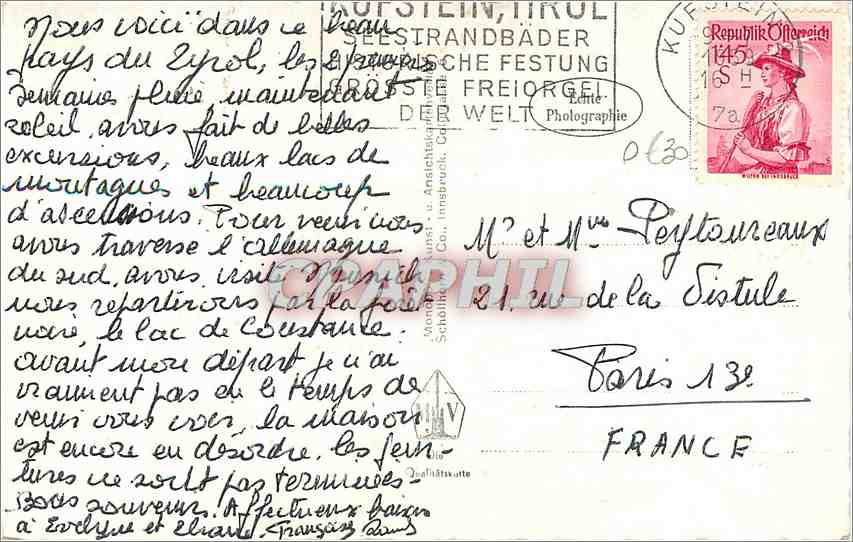 Nous voici dans ce beau
pays du Tyrol, les 2 premières
semaines pluie, maintenant
soleil, avons fait de belles
excursions, beaux lacs de
montagnes et beaucoup
d'ascensions. Pour venir nous
avons traversé l'allemagne
du sud, avons visité Munich
nous repartirons par la forêt
noire, le lac de Constance.
avant mon départ je n'ai
vraiment pas eu le temps de
venir vous voir, la maison
est encore en désordre, les pein-
tures ne sont pas terminées-
Bons souvenirs. Affectueux baisers
à Evelyne et Eliane. Françoise
KUFSTEIN, TIROL
SEESTRANDBÄDER
HISTORISCHE FESTUNG
GRÖSSTE FREIORGEL
DER WELT
Echte
Photographie
KUFSTEIN
16 H
7a
Republik Österreich
1.45
S
WILTEN BEI INNSBRUCK
0€30
Mr et Mme Peytoureaux
21. rue de la Vistule
Paris 13e
FRANCE
Kunst- u. Ansichtskartenverlag
Schöllhorn & Co., Innsbruck.
CPAPHIL
M V
Die
Qualitätskarte